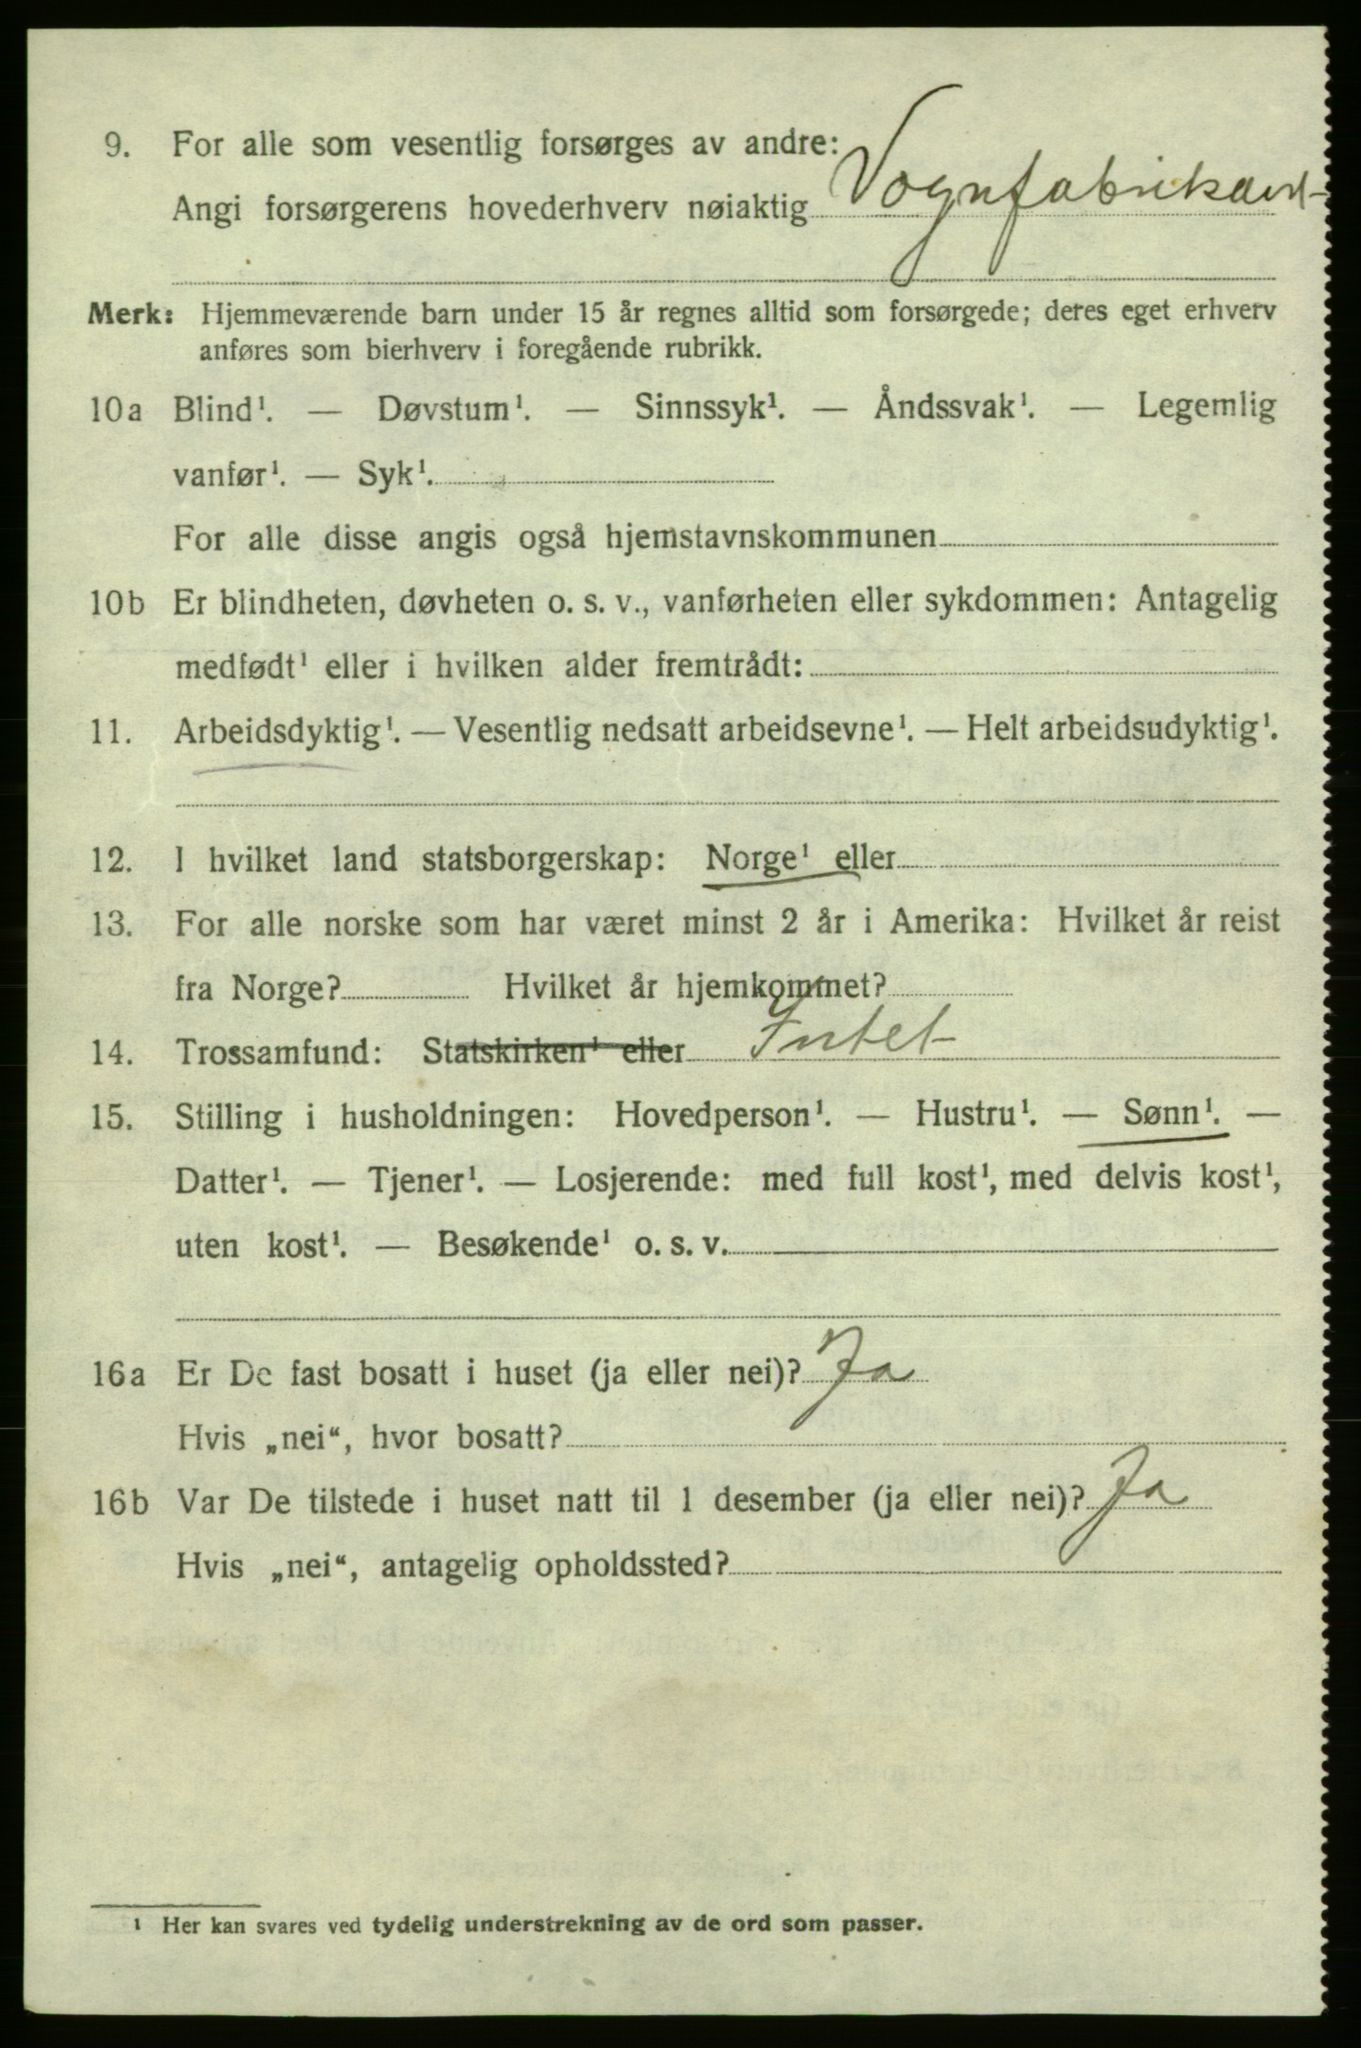 9. For alle som vesentlig forsørges av andre:
Angi forsørgerens hovederhverv nøiaktig Vognfabrikant
Merk: Hjemmeværende barn under 15 år regnes alltid som forsørgede; deres eget erhverv
anføres som bierhverv i foregående rubrikk.
10a Blind¹. — Døvstum¹. — Sinnssyk¹. — Åndssvak¹. — Legemlig
vanfør¹. — Syk¹.
For alle disse angis også hjemstavnskommunen
10b Er blindheten, døvheten o. s. v., vanførheten eller sykdommen: Antagelig
medfødt¹ eller i hvilken alder fremtrådt:
11. Arbeidsdyktig¹. — Vesentlig nedsatt arbeidsevne¹. — Helt arbeidsudyktig¹.
12. I hvilket land statsborgerskap: Norge¹ eller
13. For alle norske som har været minst 2 år i Amerika: Hvilket år reist
fra Norge? Hvilket år hjemkommet?
14. Trossamfund: Statskirken¹ eller Intet
15. Stilling i husholdningen: Hovedperson¹. — Hustru¹. — Sønn¹. —
Datter¹. — Tjener¹. — Losjerende: med full kost¹, med delvis kost¹,
uten kost¹. — Besøkende¹ o. s. v.
16a Er De fast bosatt i huset (ja eller nei)? Ja
Hvis „nei“, hvor bosatt?
16b Var De tilstede i huset natt til 1 desember (ja eller nei)? Ja
Hvis „nei“, antagelig opholdssted?
¹ Her kan svares ved tydelig understrekning av de ord som passer.